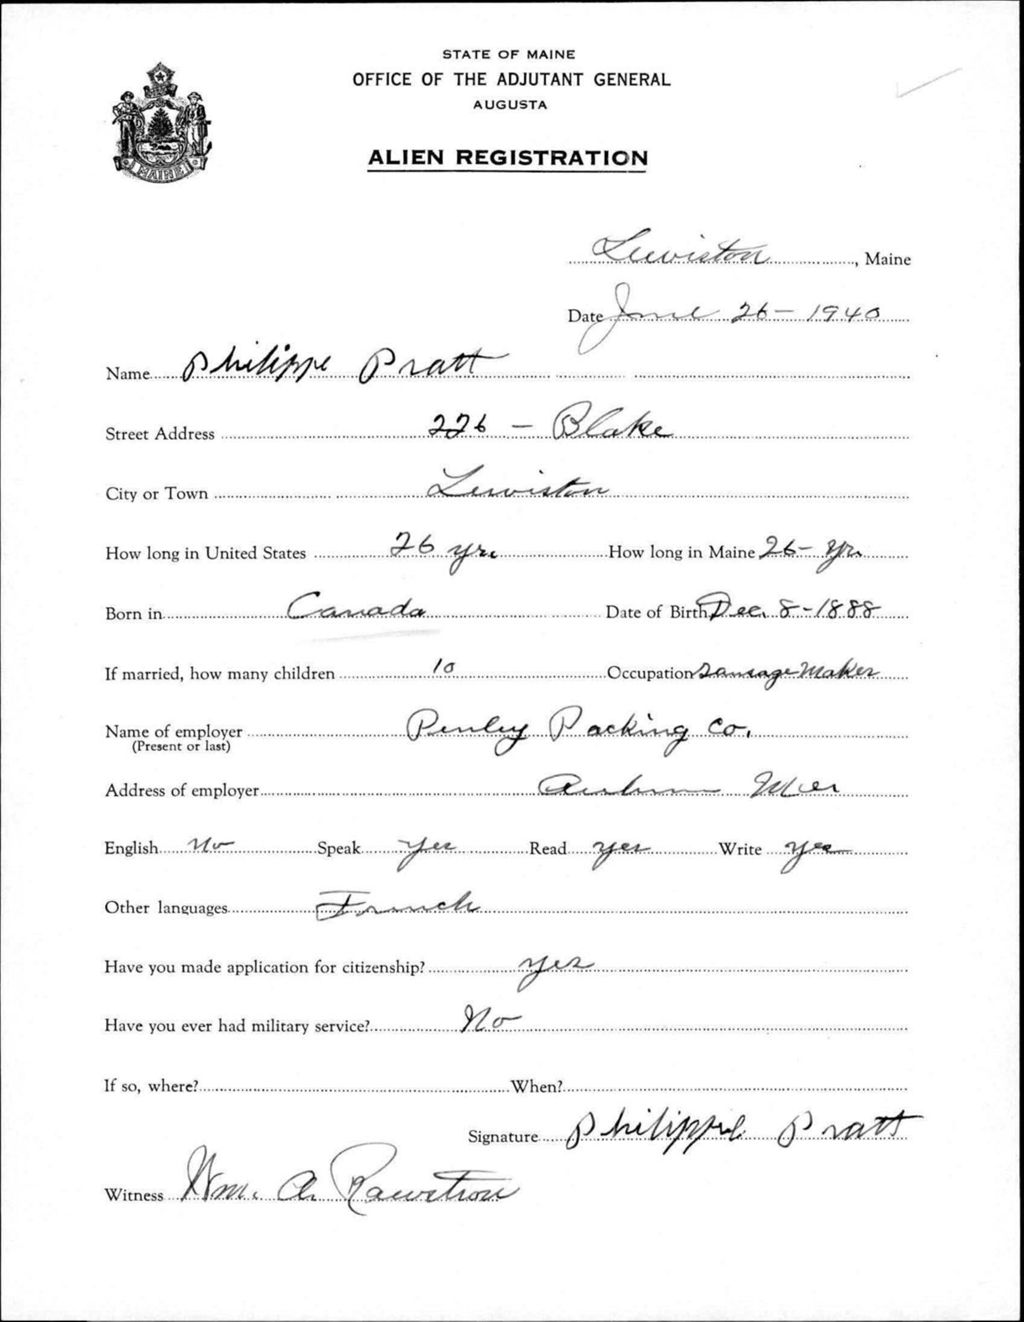 STATE OF MAINE
OFFICE OF THE ADJUTANT GENERAL
AUGUSTA
ALIEN REGISTRATION
MAINE
Lewiston, Maine
Date June 26 - 1940
Name Philippe Pratt
Street Address 226 - Blake
City or Town Lewiston
How long in United States 26 yrs How long in Maine 26 - yrs
Born in Canada Date of Birth Dec. 8 - 1888
If married, how many children 10 Occupation Sausage Maker
Name of employer Penley Packing Co.
(Present or last)
Address of employer Auburn Me
English No Speak Yes Read Yes Write Yes
Other languages French
Have you made application for citizenship? Yes
Have you ever had military service? No
If so, where? When?
Signature Philippe Pratt
Witness Wm. A. Rawstron